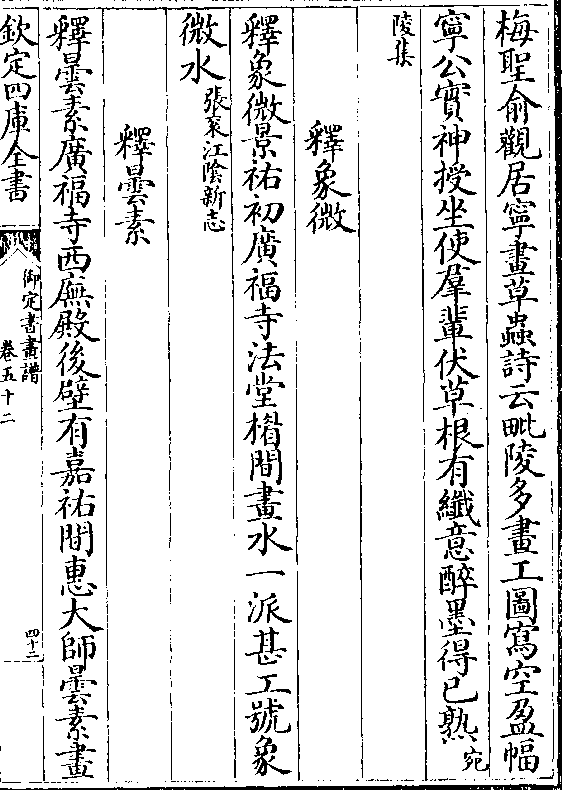 梅聖俞觀居寧畫草蟲詩云毗陵多畫工圖寫空盈幅
寧公實神授坐使羣輩伏草根有纖意醉墨得已熟宛
陵集
釋象微
釋象微景祐初廣福寺法堂楣間畫水一派甚工號象
微水張袞江陰新志
釋曇素
釋曇素廣福寺西廡殿後壁有嘉祐間惠大師曇素畫
欽定四庫全書
御定書畫譜
卷五十二
四十二